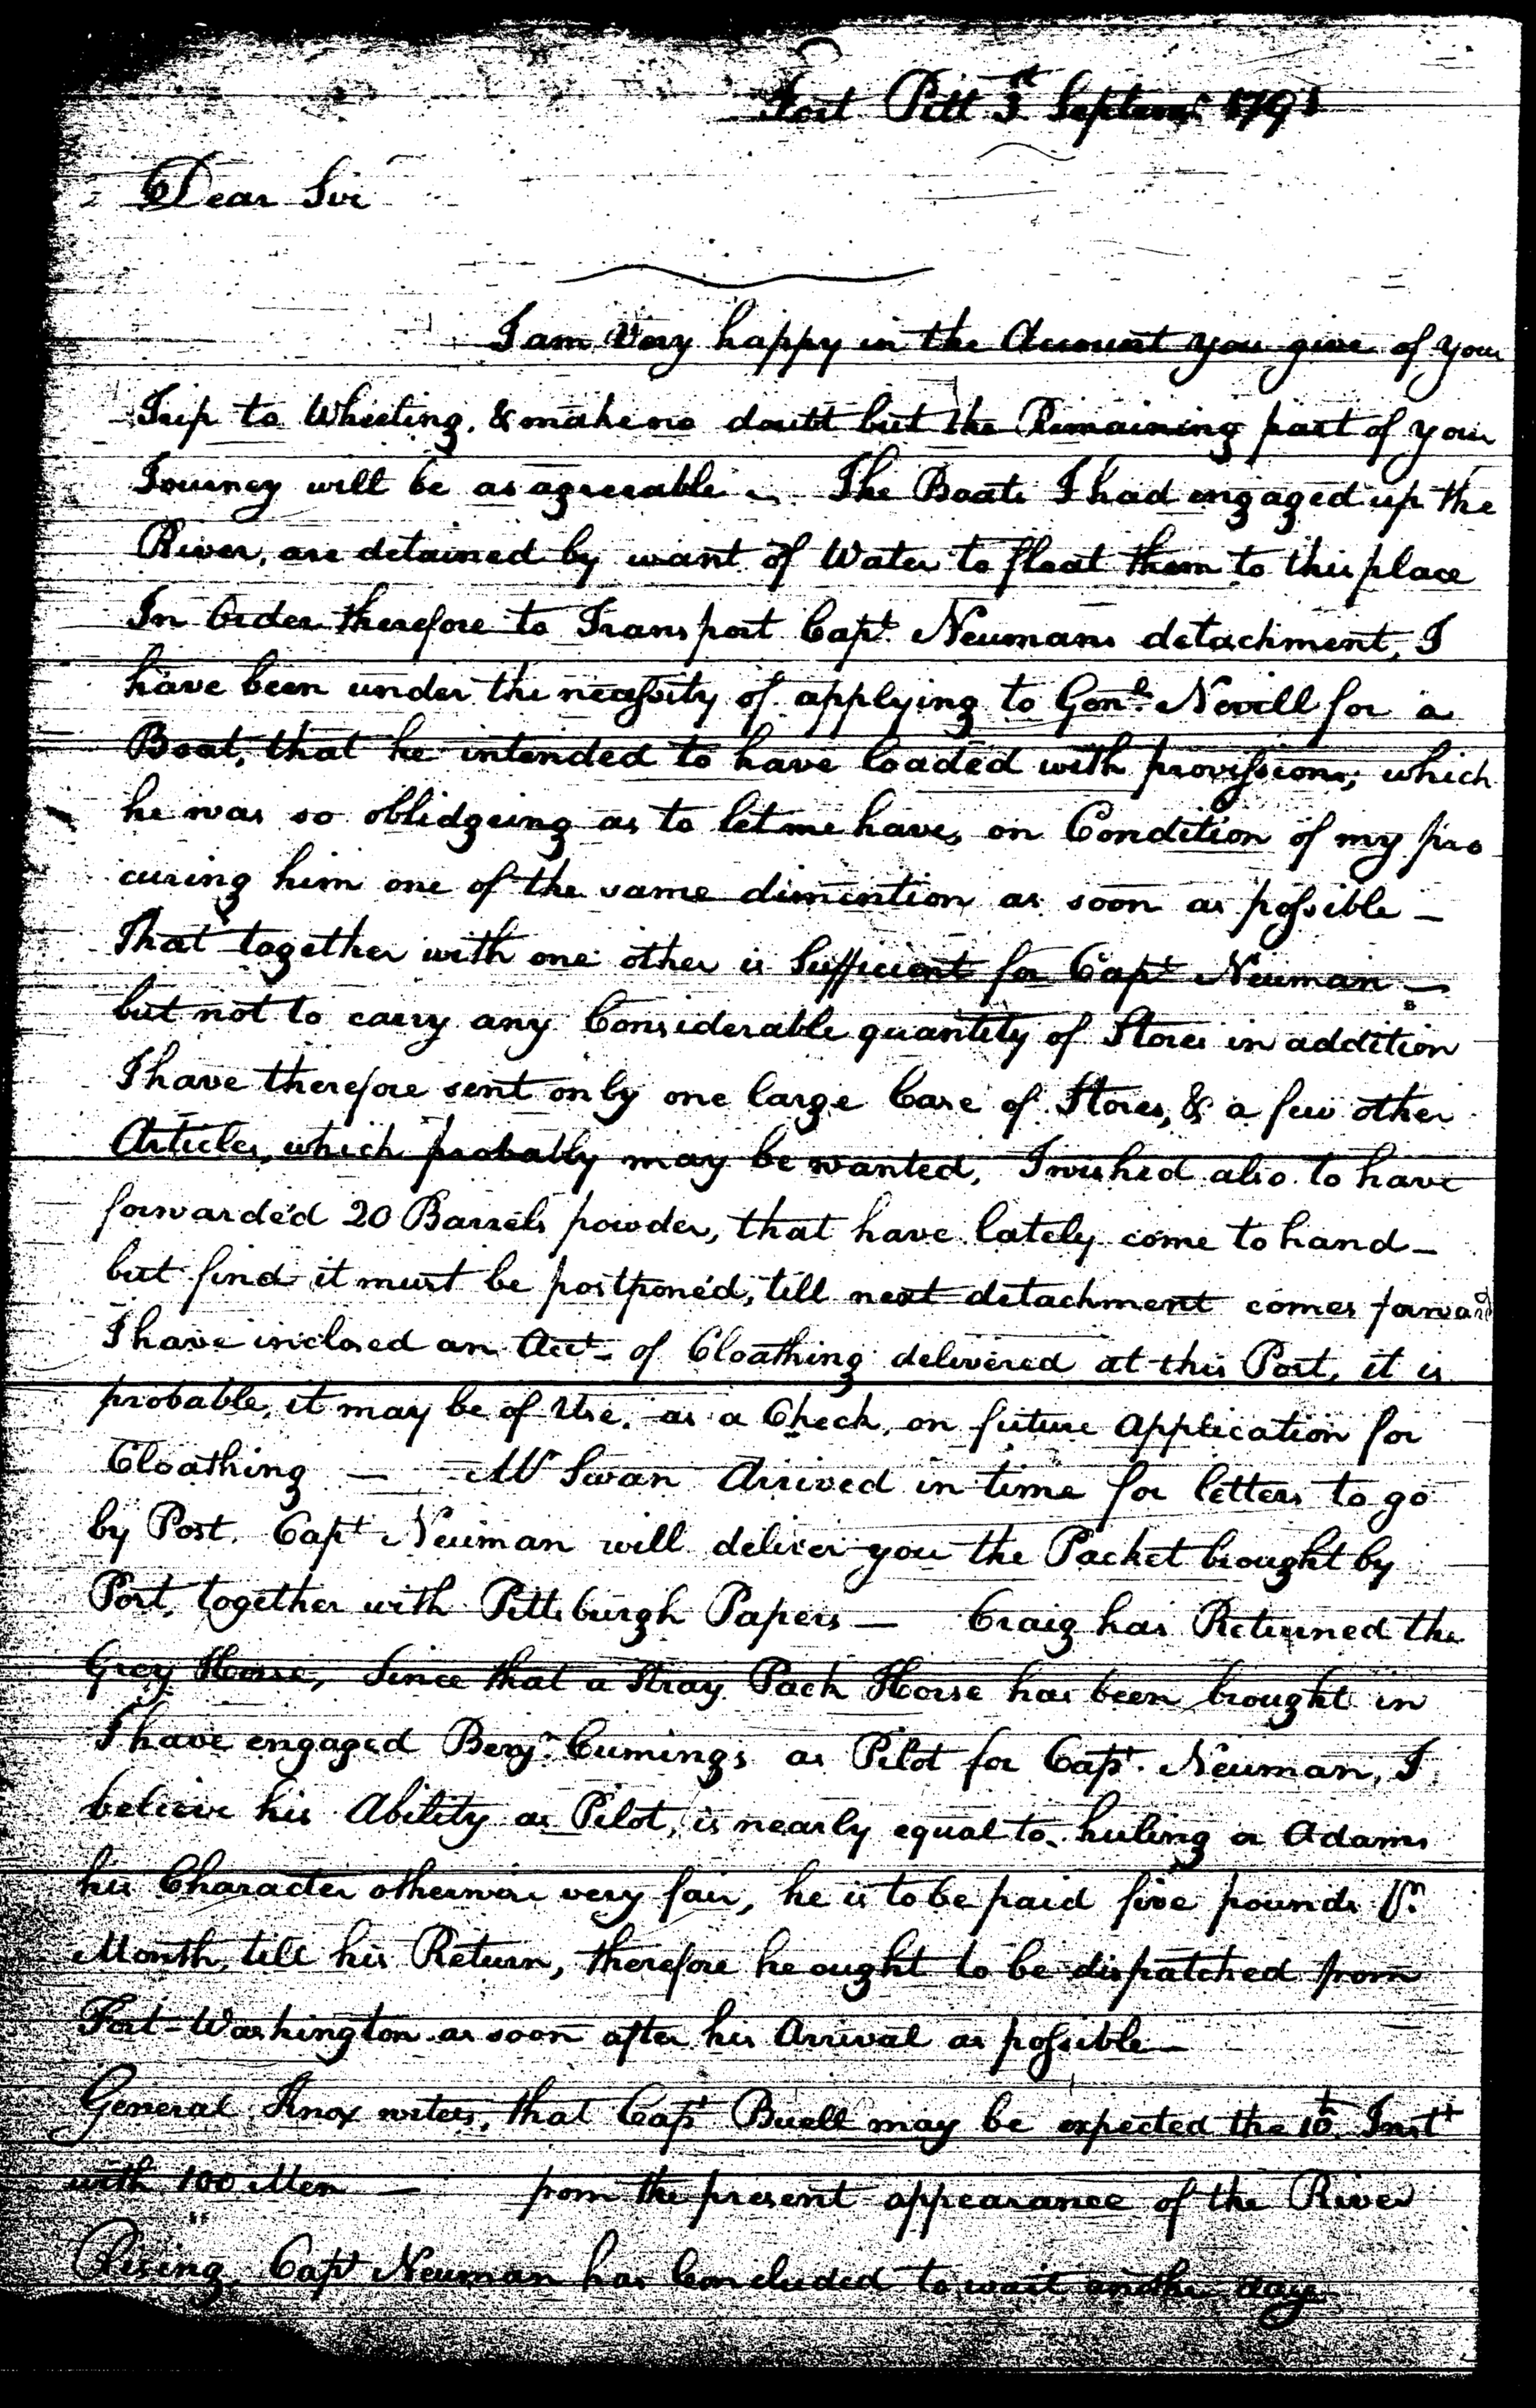 Fort Pitt 3d Septemr 1791
Dear Sir
I am Very happy in the Account you give of your
Trip to Wheeling, & make no doubt but the Remaining part of your
Journey will be as agreeable — The Boats I had engaged up the
River, are detained by want of Water to float them to this place
In Order therefore to Transport Capt. Neumans detachment, I
have been under the necessity of applying to Genl. Nevill for a
Boat, that he intended to have loaded with provissions; which
he was so oblidgeing as to let me have, on Condition of my pro
curing him one of the same dimention as soon as possible —
That together with one other is Sufficient for Capt Neuman —
but not to carry any Considerable quantity of Stores in addition
I have therefore sent only one large Case of Stores, & a few other
Articles, which probably may be wanted, I wished also to have
forwarded 20 Barrels powder, that have lately come to hand —
but find it must be postponed, till next detachment comes forward
I have inclosed an Acct. of Cloathing delivered at this Post, it is
probable, it may be of Use, as a Check, on future Application for
Cloathing — Mr Swan Arrived in time for letters to go
by Post. Capt Neuman will deliver you the Packet brought by
Post, together with Pittsburgh Papers — Craig has Returned the
Grey Horse, Since that a Stray Pack Horse has been brought in
I have engaged Benjn. Cumings as Pilot for Capt. Neuman, I
believe his Ability as Pilot, is nearly equal to huling or Adams
his Character otherwise very fair, he is to be paid five pounds Pr.
Month, till his Return, therefore he ought to be dispatched from
Fort-Washington as soon after his Arrival as possible —
General Knox writes, that Capt Buell may be expected the 10th Inst
with 100 Men — from the present appearance of the River
Rising, Capt Neuman has Concluded to wait another day